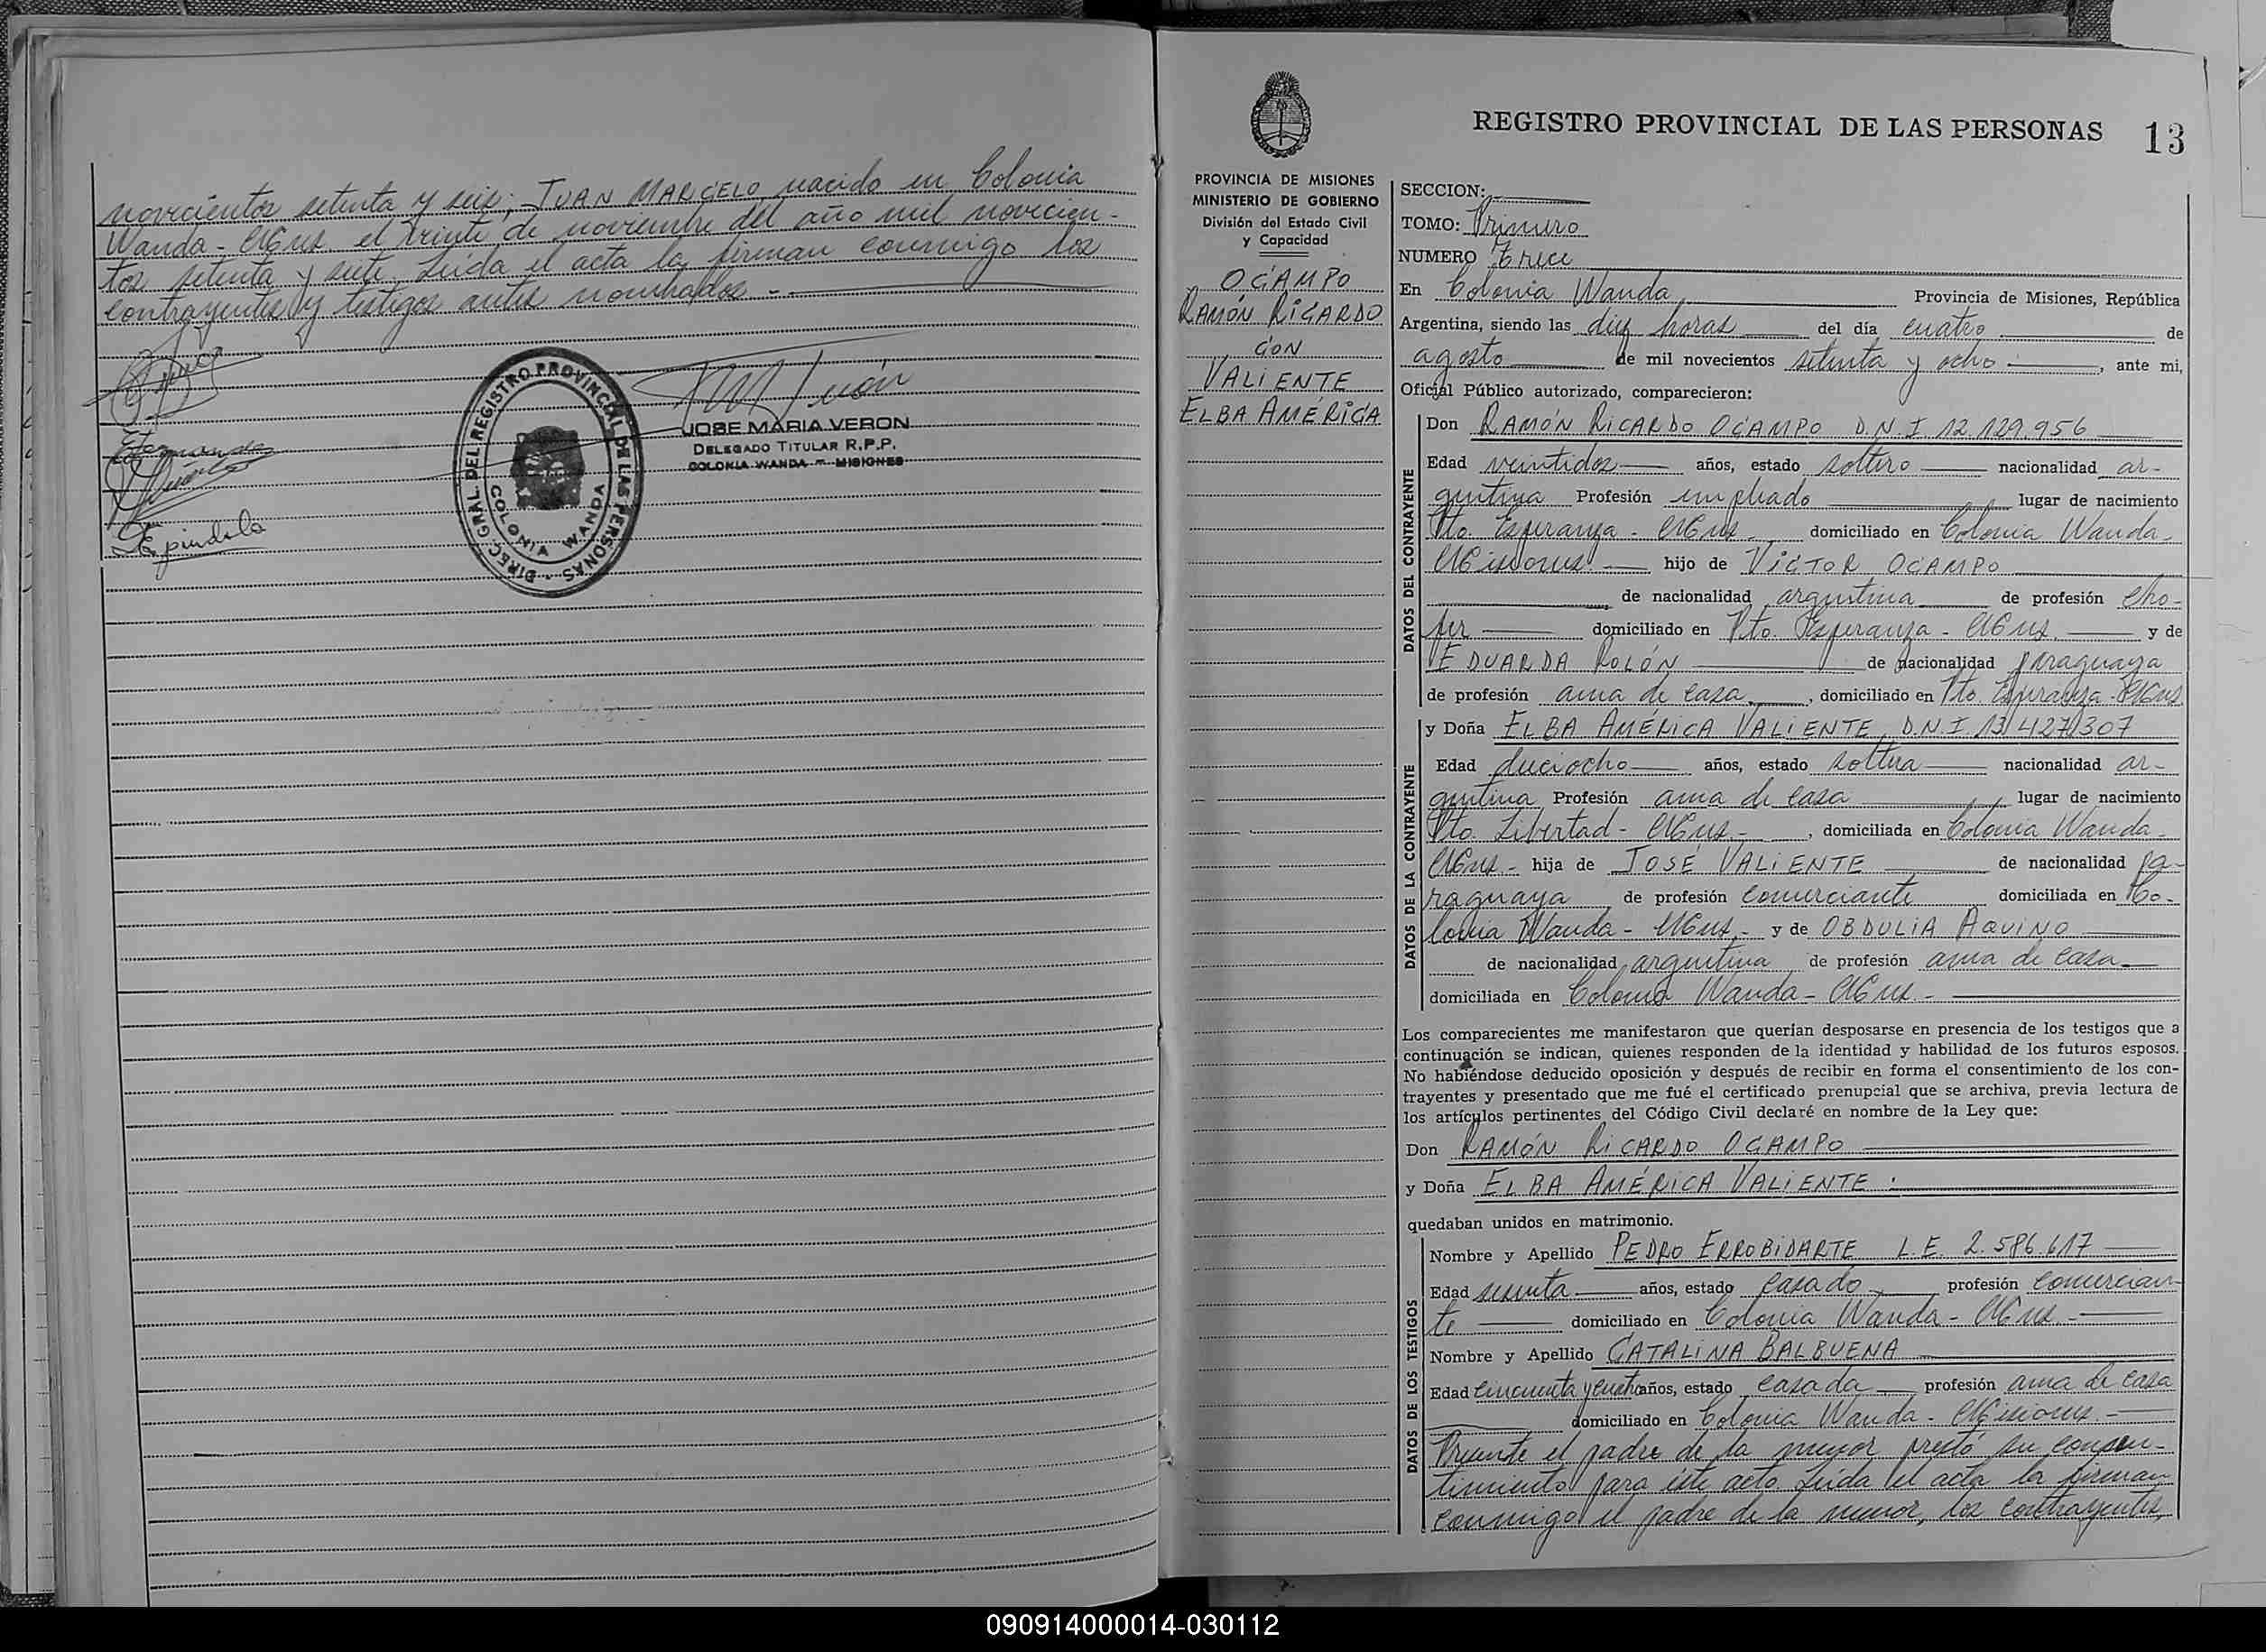 novecientos setenta y seis; JUAN MARCELO, nacido en Colonia
Wanda - Mnes. el treinta de noviembre del año mil novecien-
tos setenta y siete. Leída el acta la firman conmigo los
contrayentes y testigos antes nombrados.-
DIREC. GRAL. DEL REGISTRO PROVINCIAL DE LAS PERSONAS
COLONIA WANDA
JOSE MARIA VERON
DELEGADO TITULAR R.P.P.
COLONIA WANDA - MISIONES
Espindola
REGISTRO PROVINCIAL DE LAS PERSONAS 13
PROVINCIA DE MISIONES
MINISTERIO DE GOBIERNO
División del Estado Civil
y Capacidad
OCAMPO
RAMÓN RICARDO
CON
VALIENTE
ELBA AMÉRICA
SECCION:
TOMO: Primero
NUMERO Trece
En Colonia Wanda, Provincia de Misiones, República
Argentina, siendo las diez horas del día cuatro de
agosto de mil novecientos setenta y ocho, ante mi,
Oficial Público autorizado, comparecieron:
DATOS DEL CONTRAYENTE
Don RAMÓN RICARDO OCAMPO D.N.I. 12.129.956
Edad veintidos años, estado soltero nacionalidad ar-
gentina Profesión empleado lugar de nacimiento
Pto. Esperanza - Mnes. domiciliado en Colonia Wanda -
Misiones - hijo de VICTOR OCAMPO
de nacionalidad argentina de profesión cho-
fer domiciliado en Pto. Esperanza - Mnes. y de
EDUARDA ROLÓN de nacionalidad paraguaya
de profesión ama de casa, domiciliado en Pto. Esperanza - Mnes.
DATOS DE LA CONTRAYENTE
y Doña ELBA AMÉRICA VALIENTE, D.N.I. 13.427.307
Edad dieciocho años, estado soltera nacionalidad ar-
gentina Profesión ama de casa lugar de nacimiento
Pto. Libertad - Mnes.-, domiciliada en Colonia Wanda -
Mnes.- hija de JOSÉ VALIENTE de nacionalidad pa-
raguaya de profesión comerciante domiciliada en Co-
lonia Wanda - Mnes.- y de OBDULIA AQUINO
de nacionalidad argentina de profesión ama de casa
domiciliada en Colonia Wanda - Mnes.-
Los comparecientes me manifestaron que querían desposarse en presencia de los testigos que a
continuación se indican, quienes responden de la identidad y habilidad de los futuros esposos.
No habiéndose deducido oposición y después de recibir en forma el consentimiento de los con-
trayentes y presentado que me fué el certificado prenupcial que se archiva, previa lectura de
los artículos pertinentes del Código Civil declaré en nombre de la Ley que:
Don RAMÓN RICARDO OCAMPO
y Doña ELBA AMÉRICA VALIENTE.
quedaban unidos en matrimonio.
DATOS DE LOS TESTIGOS
Nombre y Apellido PEDRO ERROBIDARTE L.E. 2.586.617
Edad sesenta años, estado casado profesión comercian-
te domiciliado en Colonia Wanda - Mnes.-
Nombre y Apellido CATALINA BALBUENA
Edad cincuenta y cuatro años, estado casada profesión ama de casa
domiciliado en Colonia Wanda - Misiones.-
Presente el padre de la menor prestó su consen-
timiento para este acto. Leída el acta la firman
conmigo el padre de la menor, los contrayentes,
090914000014-030112